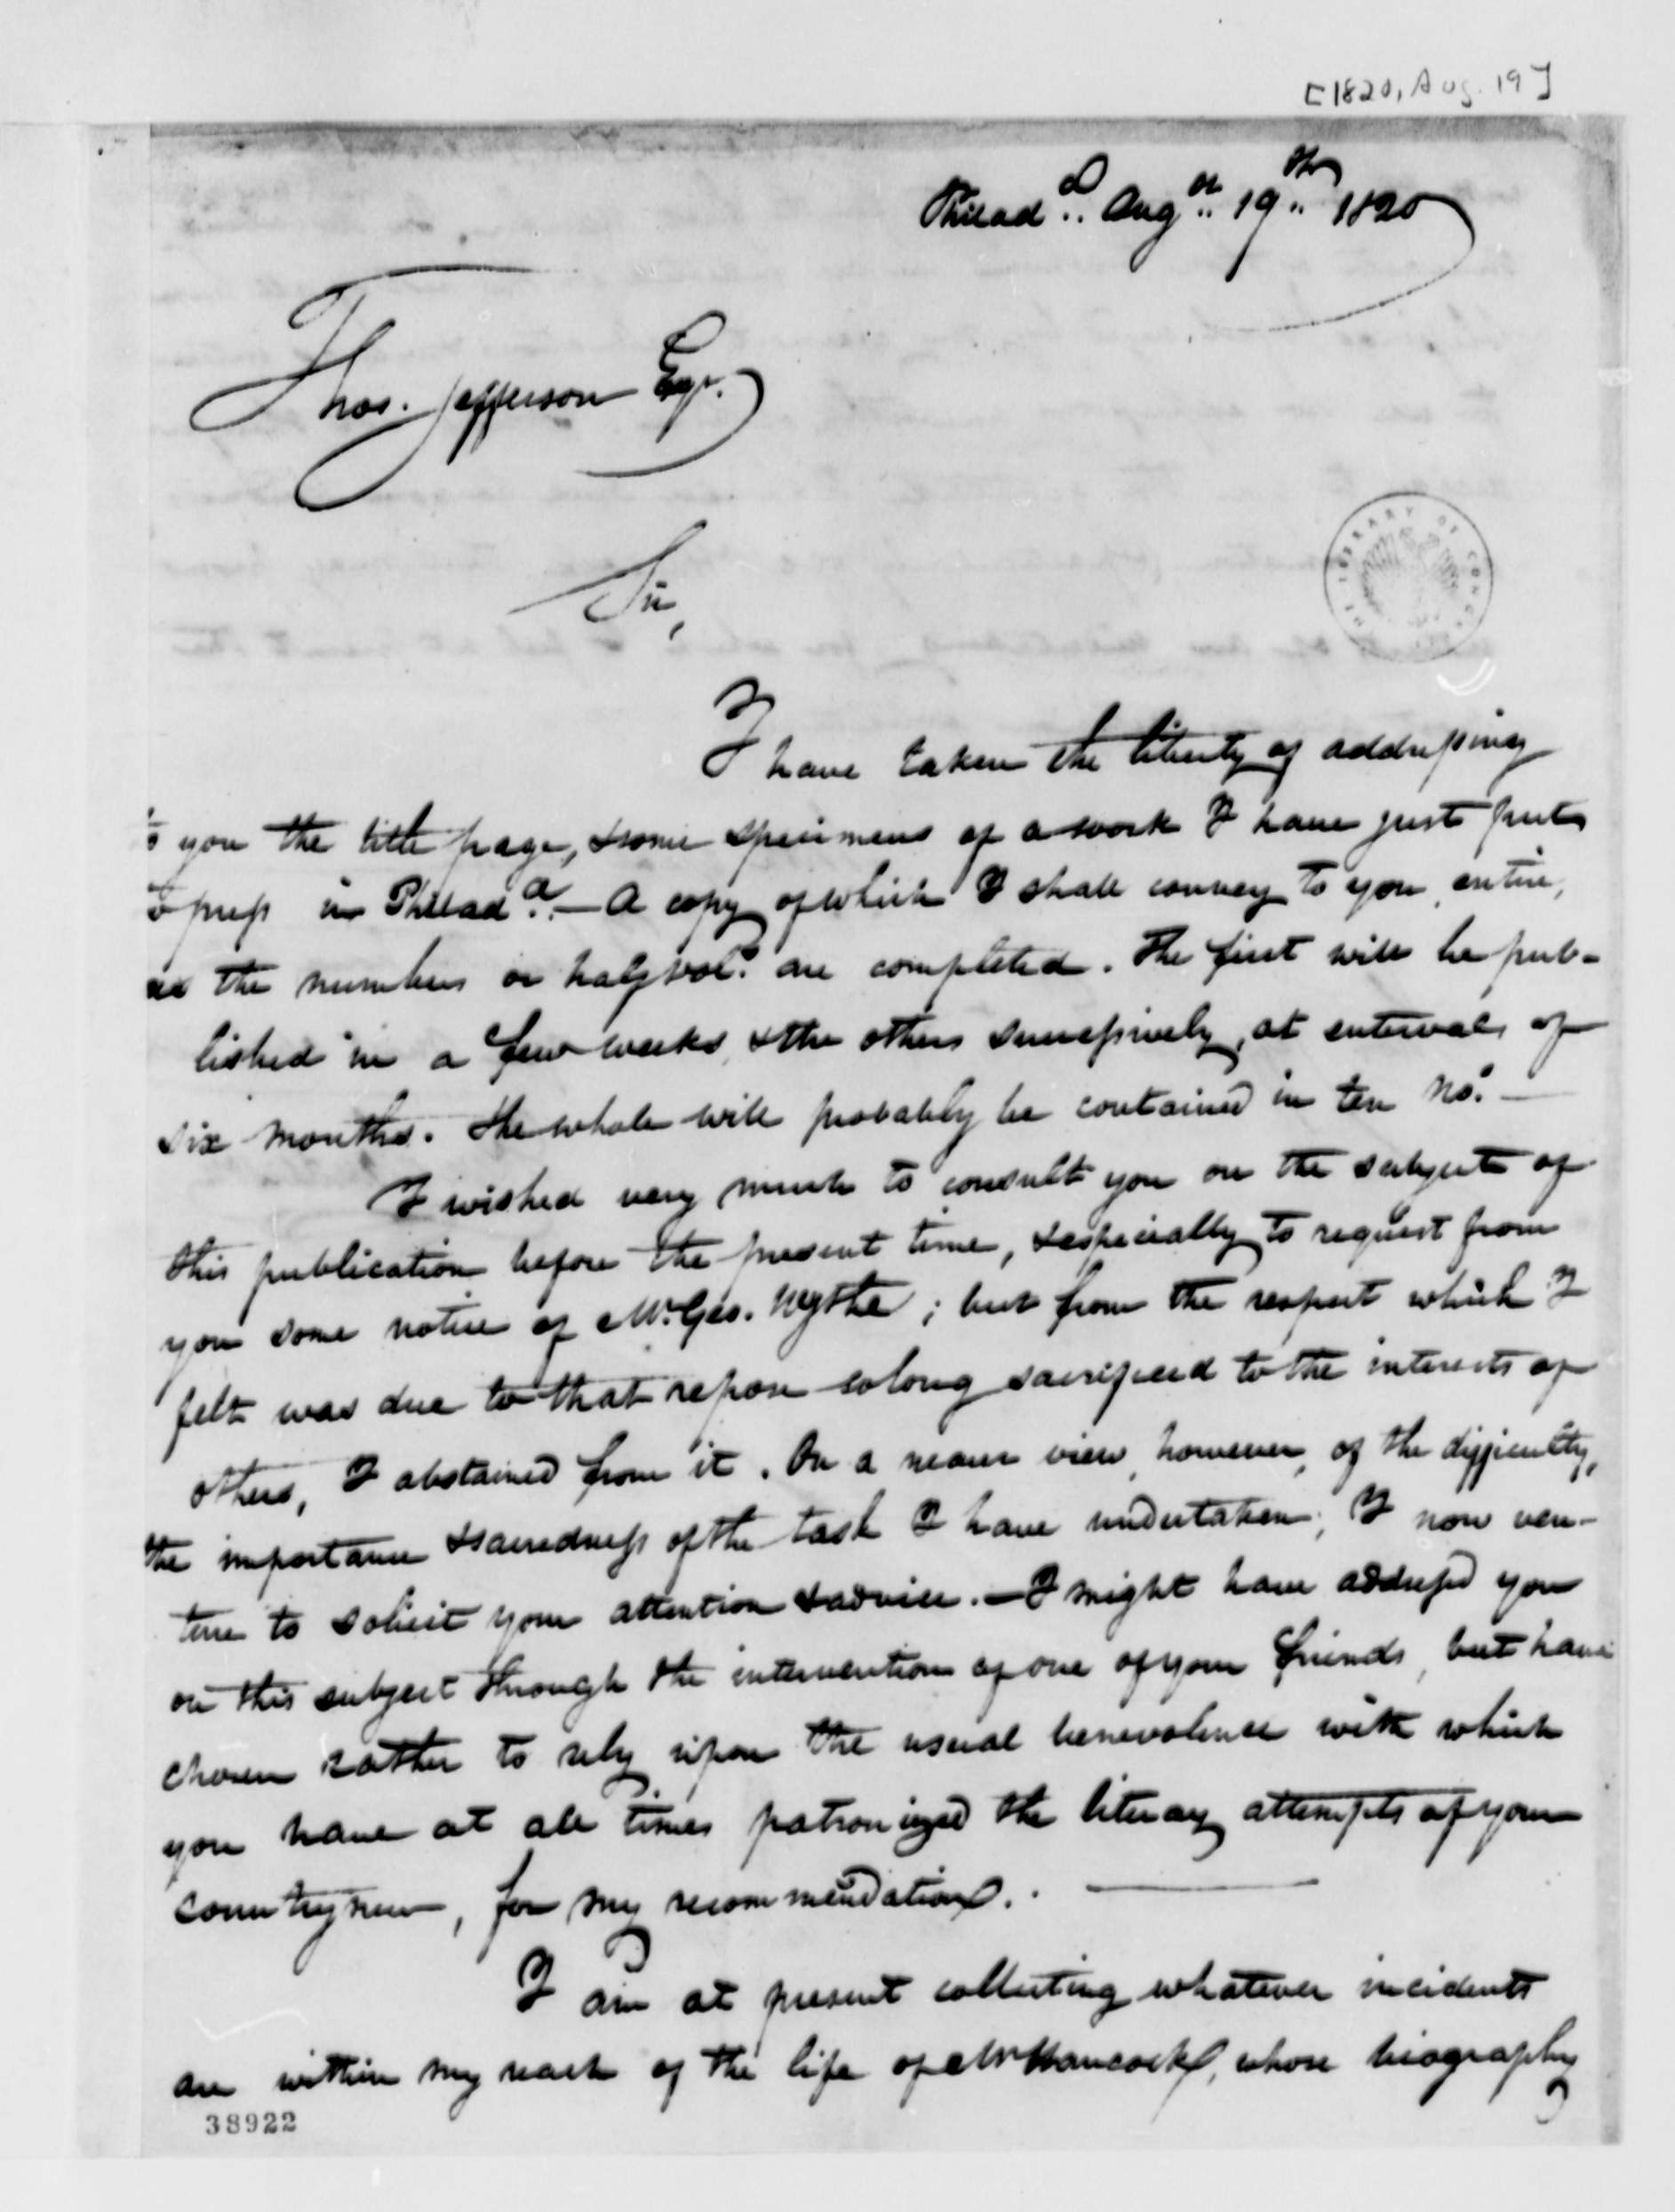 [1820, Aug. 19]
Philad.a Aug.st 19.th 1820
Thos. Jefferson Esqr.
THE LIBRARY OF CONGRESS
Sir,
I have taken the liberty of addressing
to you the title page, & some specimens of a work I have just put
to press in Philad.a — A copy of which I shall convey to you, entire,
as the numbers or half vol.s are completed. The first will be pub-
lished in a few weeks, & the others successively, at intervals of
six months. The whole will probably be contained in ten No.s —
I wished very much to consult you on the subject of
this publication before the present time, & especially to request from
you some notice of Mr. Geo. Wythe; but from the respect which I
felt was due to that repose so long sacrificed to the interests of
others, I abstained from it. On a nearer view, however, of the difficulty,
the importance & sacredness of the task I have undertaken, I now ven-
ture to solicit your attention & advice. — I might have addressed you
on this subject through the intervention of one of your friends, but have
chosen rather to rely upon the usual benevolence with which
you have at all times patronized the literary attempts of your
countrymen, for my recommendation. —
I am at present collecting whatever incidents
are within my reach of the life of Mr Hancock, whose biography
38922